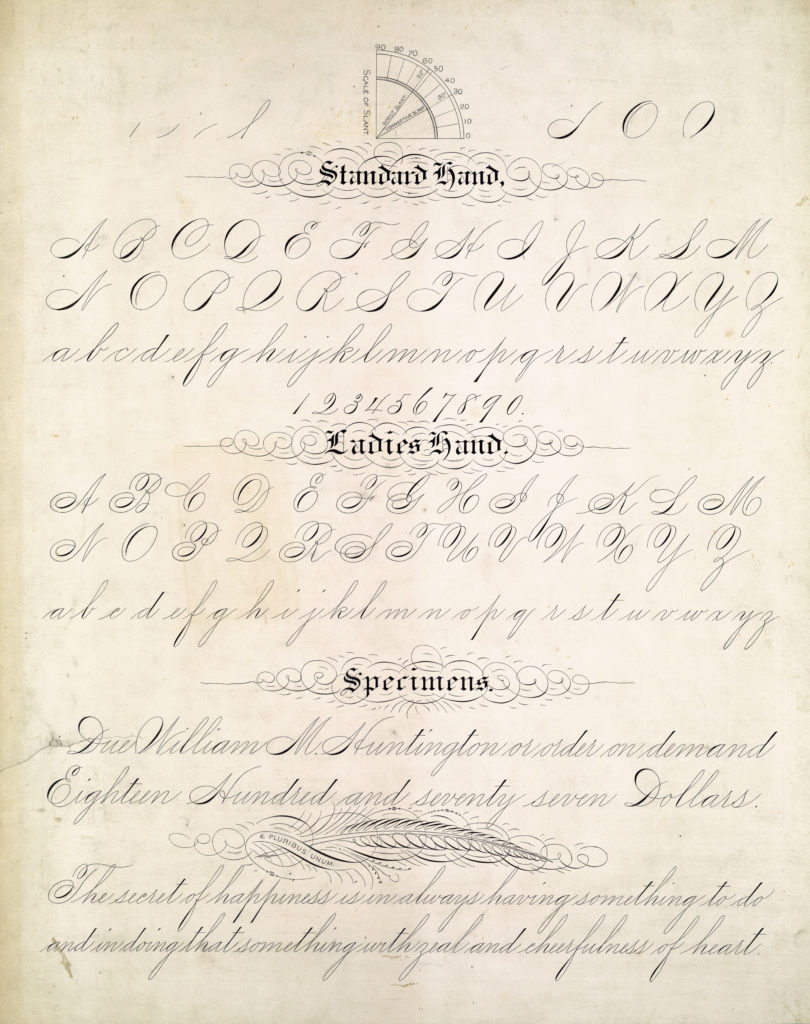 90 80 70 60 50 40 30 20 10 0
SCALE OF SLANT.
52° DIRECT SLANT
30° CONNECTIVE SLANT
Standard Hand,
A B C D E F G H I J K L M
N O P Q R S T U V W X Y Z
a b c d e f g h i j k l m n o p q r s t u v w x y z
1 2 3 4 5 6 7 8 9 0.
Ladies Hand,
A B C D E F G H I J K L M
N O P Q R S T U V W X Y Z
a b c d e f g h i j k l m n o p q r s t u v w x y z
Specimens.
Due William M. Huntington or order on demand
Eighteen Hundred and seventy seven Dollars.
E PLURIBUS UNUM
The secret of happiness is in always having something to do
and in doing that something with zeal and cheerfulness of heart.